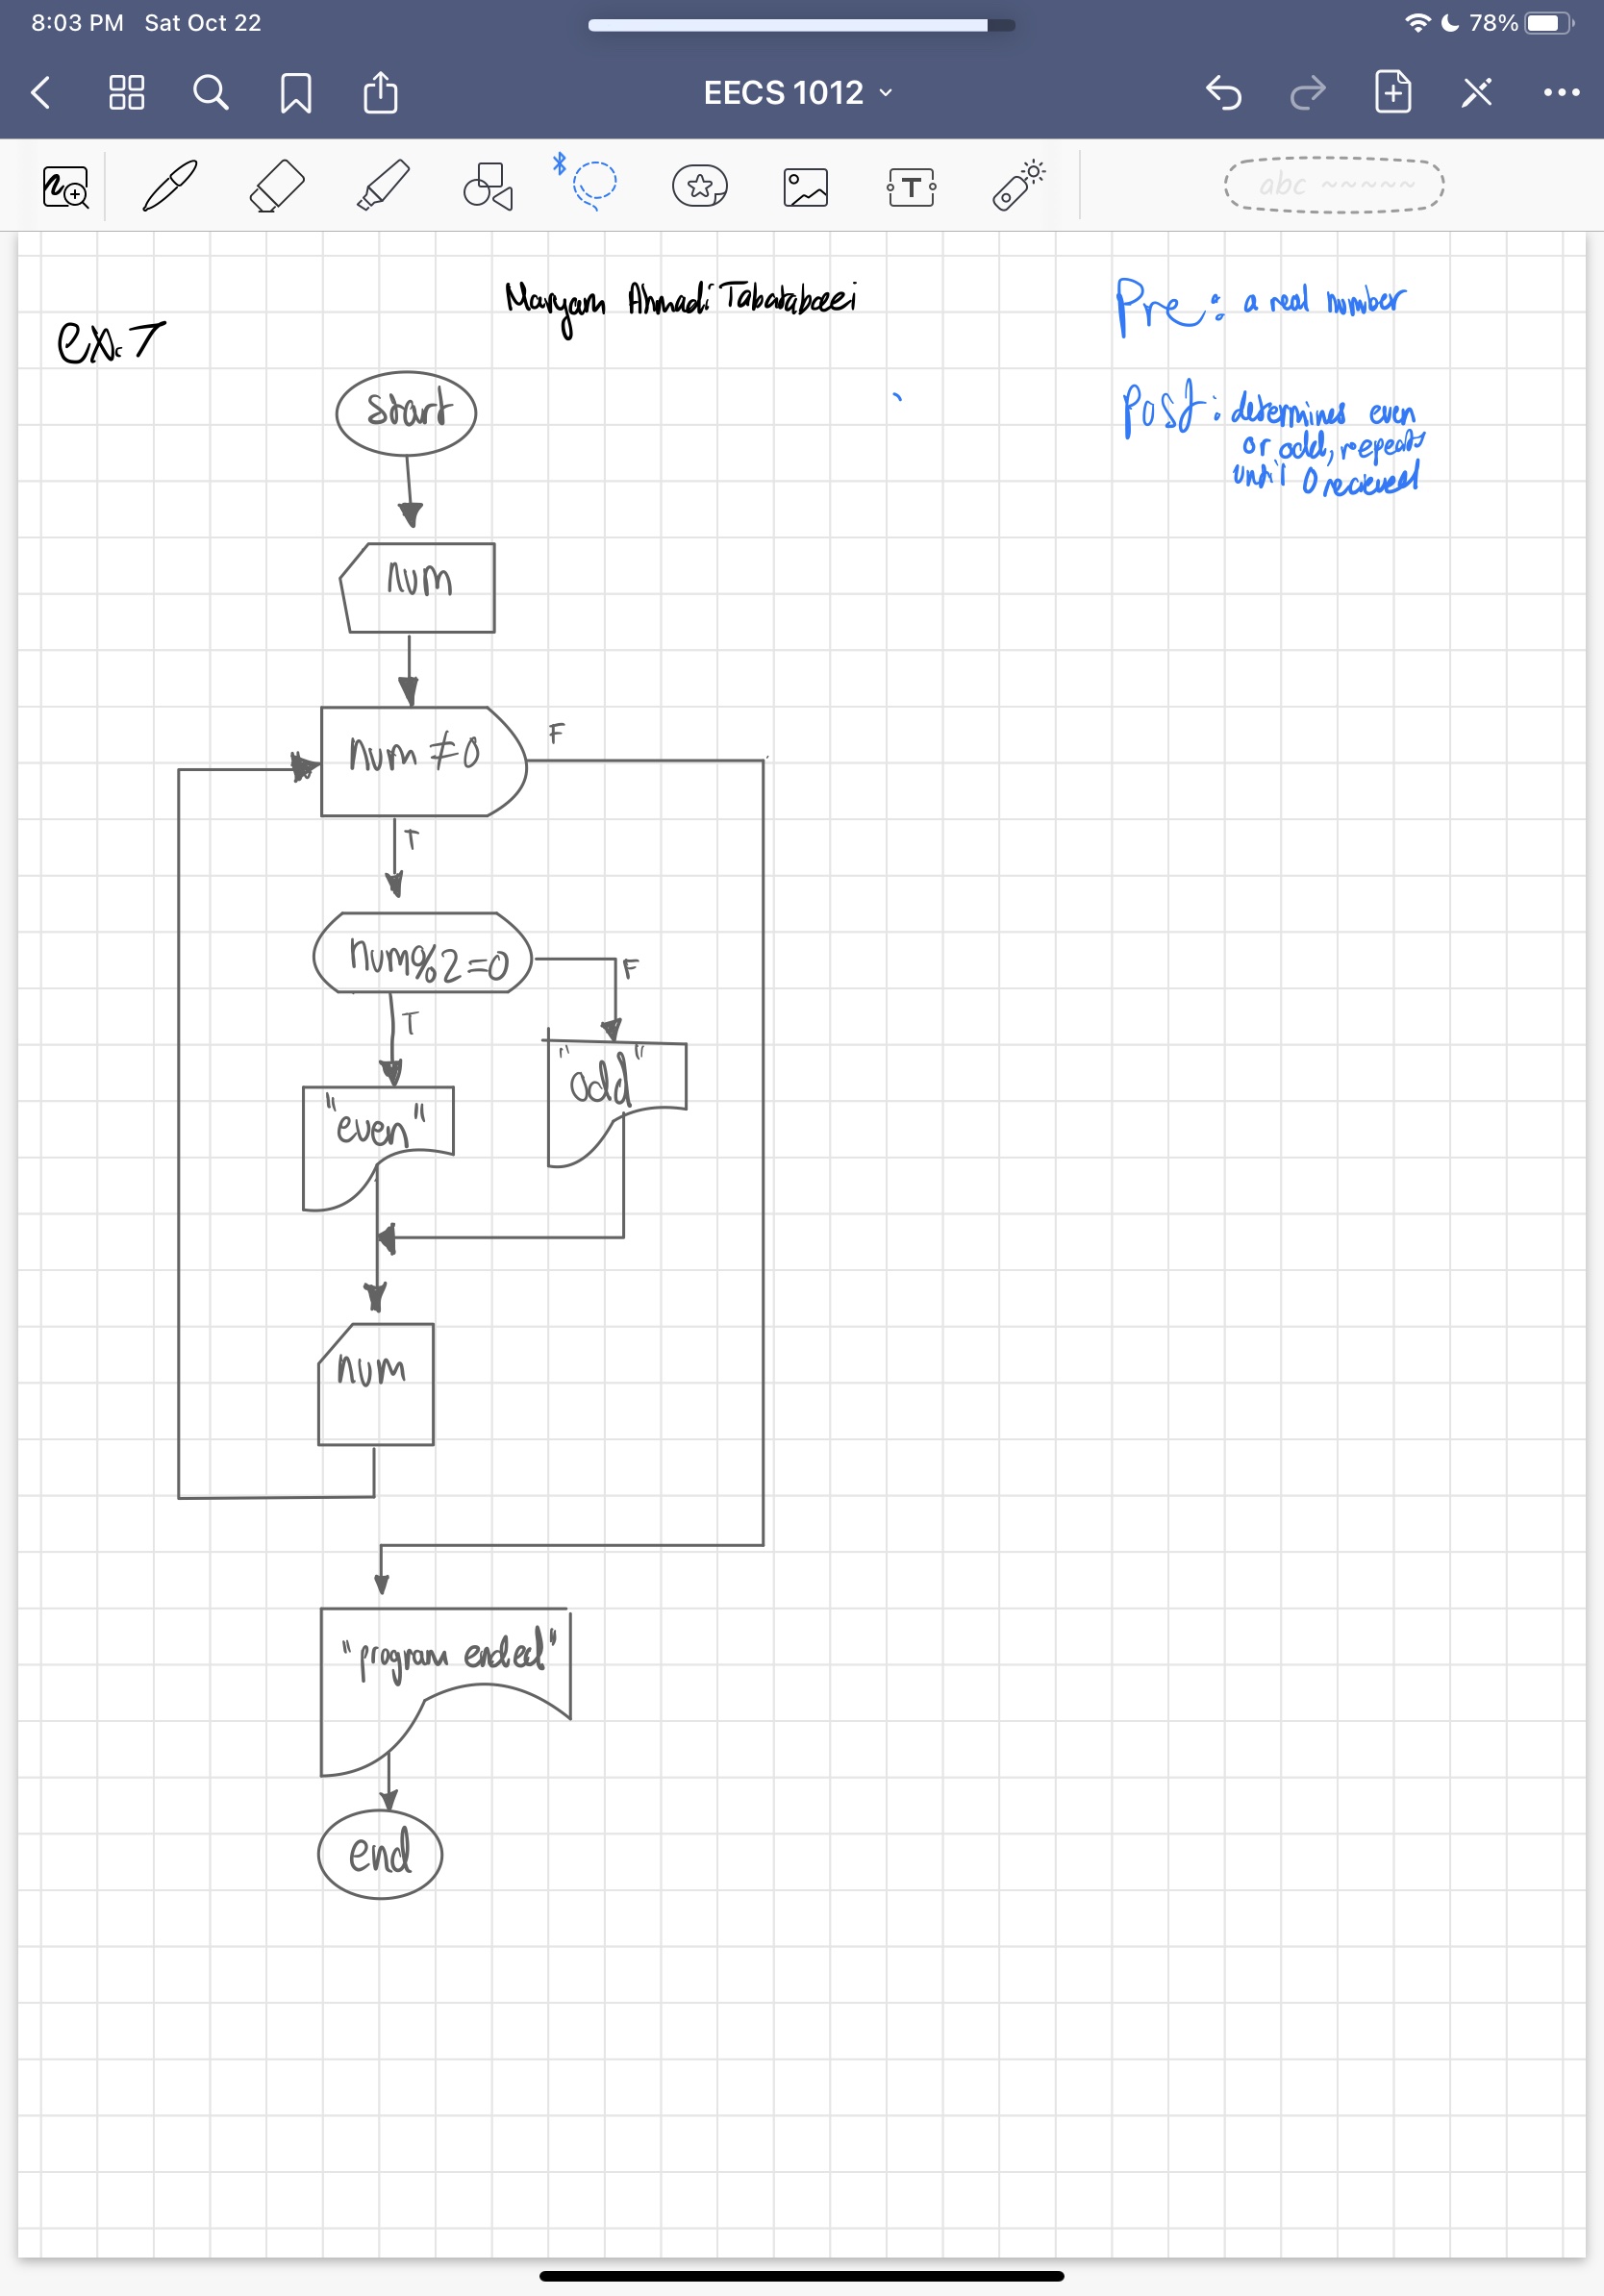 8:03 PM Sat Oct 22
78%
EECS 1012
T
abc
Maryam Ahmadi Tabatabaei
Pre: a real number
ex.7
Post: determines even
or odd, repeats
until 0 recieved
start
num
num ≠ 0
F
T
num%2=0
F
T
"odd"
"even"
num
"program ended"
end